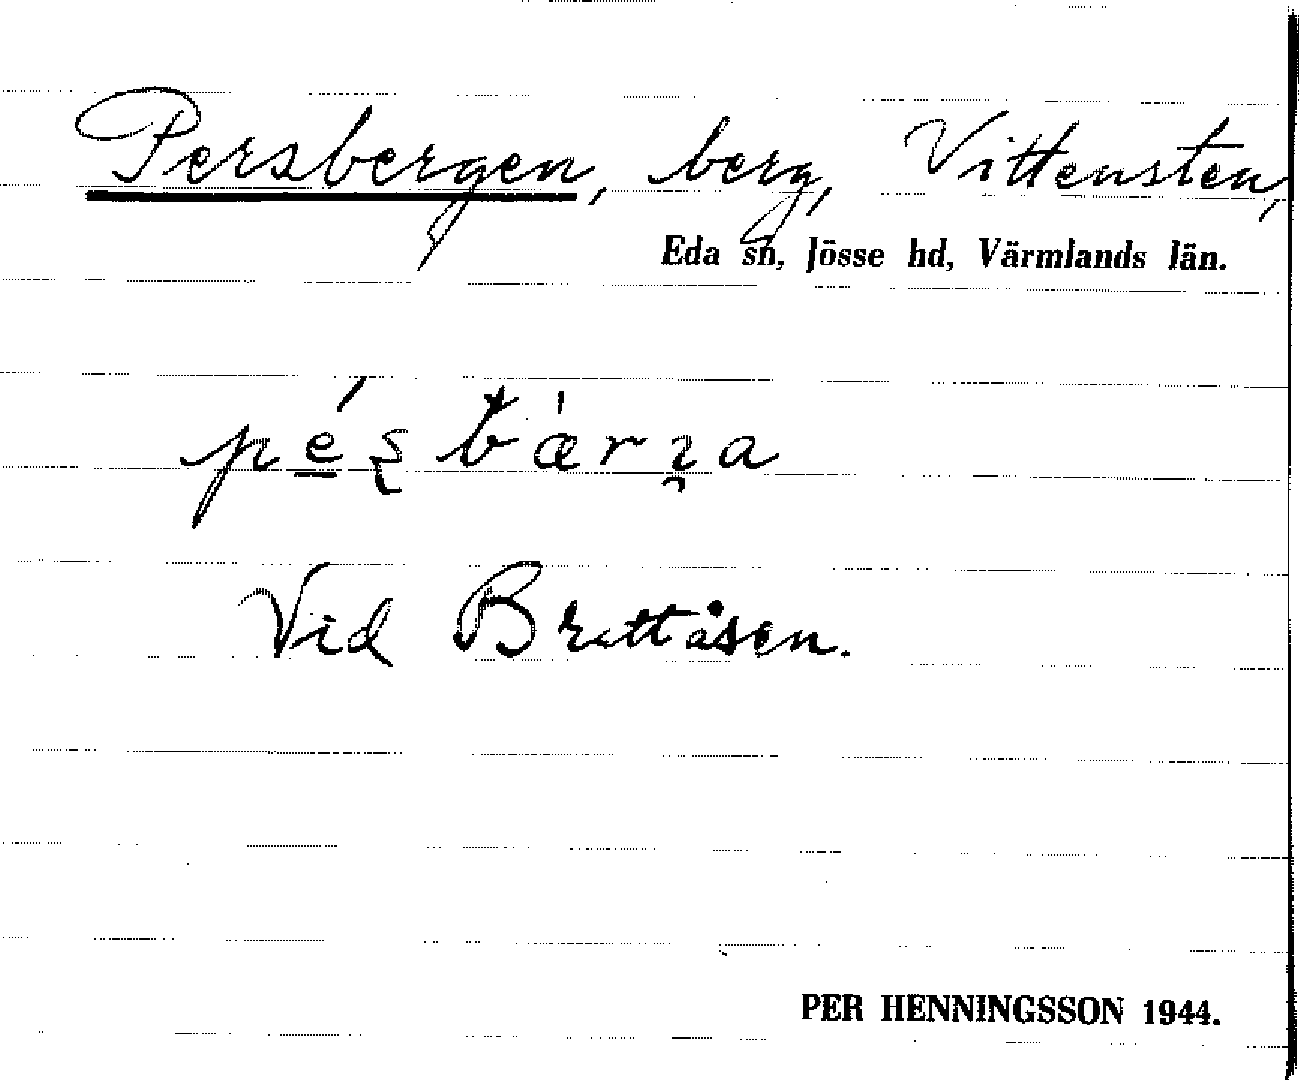 Persbergen, berg, Vittensten,
Eda sn, Jösse hd, Värmlands län.
Vid Brattåsen.
PER HENNINGSSON 1944.